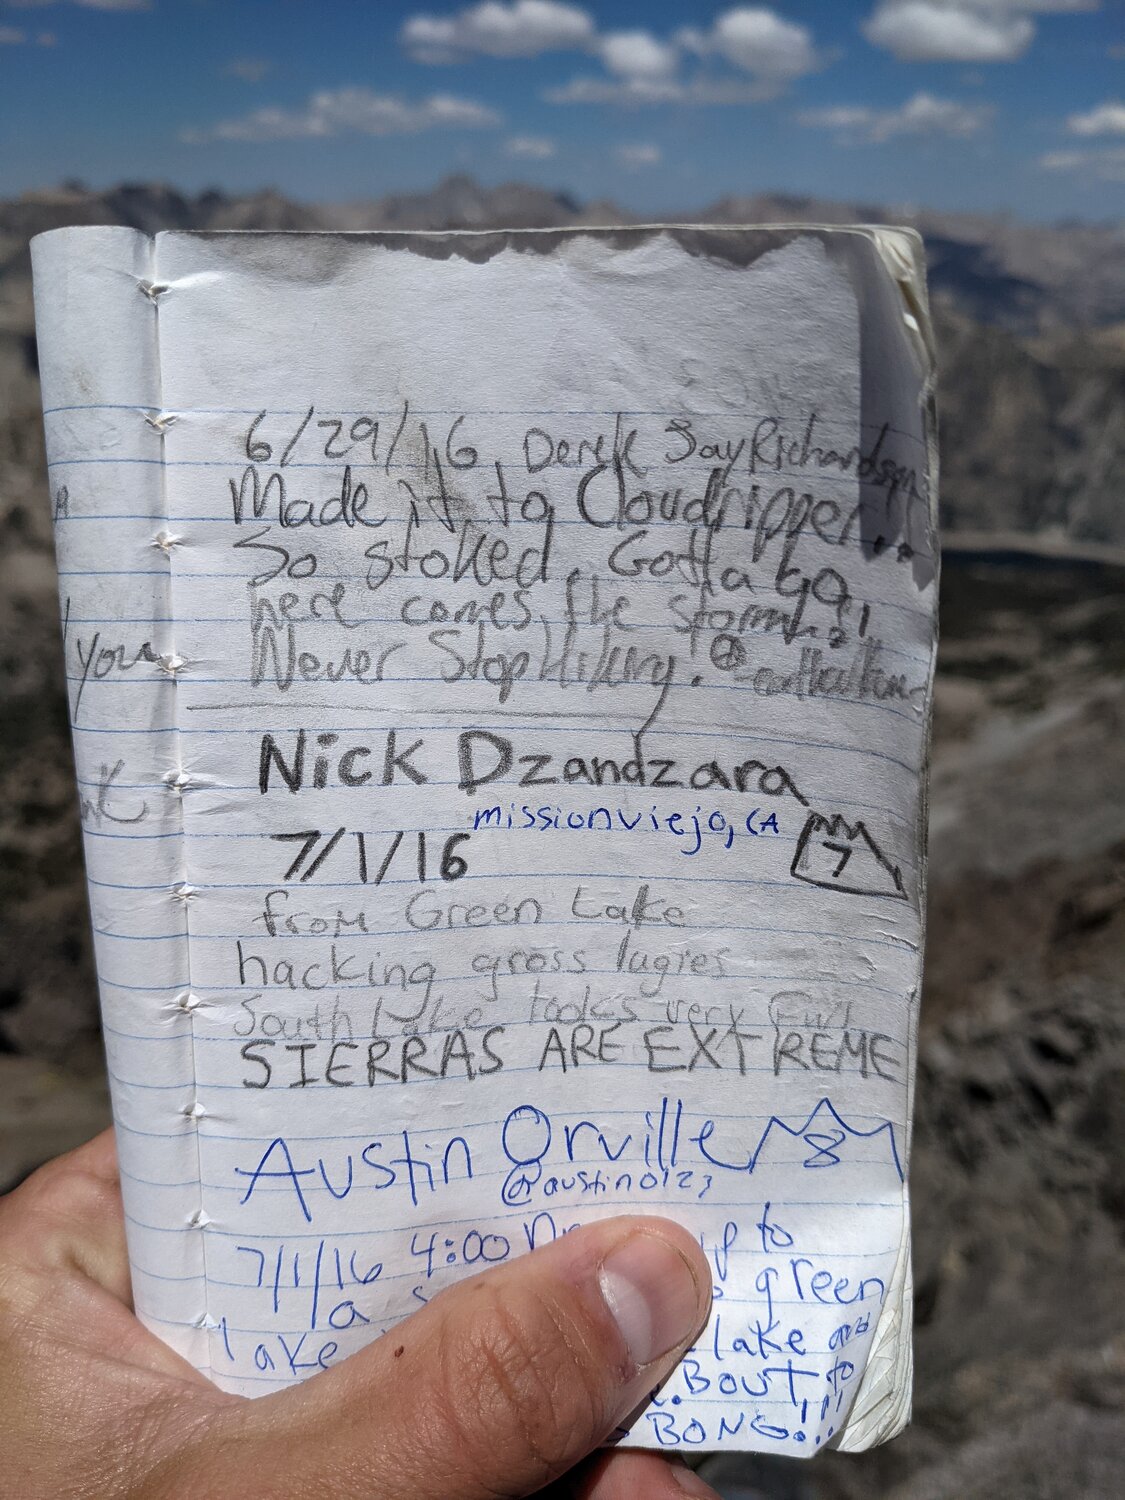 6/29/16 Derek Jay Richardson
Made it to Cloudripper..
So stoked. Gotta go,
here comes the storm!
Never Stop Hiking.
you
Nick Dzandzara
missionviejo, CA
7/1/16
7
from Green Lake
hacking gross lugies
South Lake looks very Fun
SIERRAS ARE EXTREME
Austin Orville
8
@austino123
7/1/16 4:00 up to
a green
lake lake and
.Bout to
BONG!!!